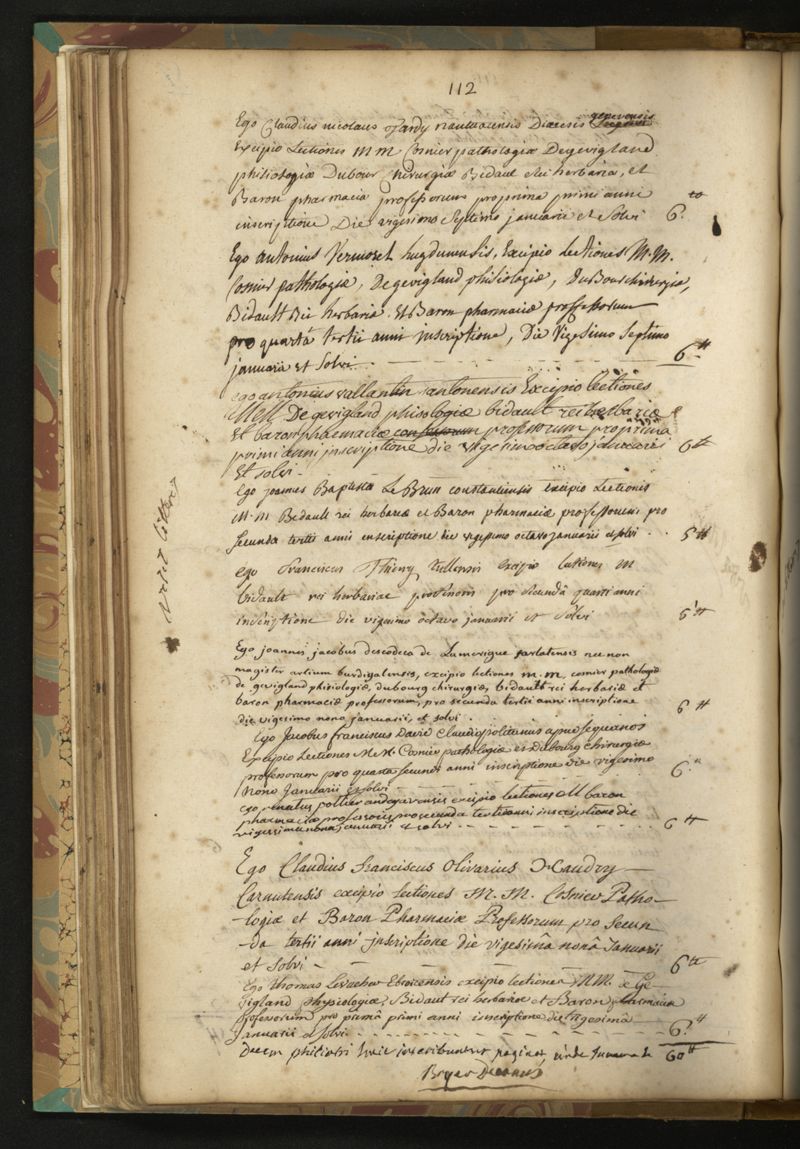 112
Ego Claudius nicolaus Jardy nantuacensis Diœcesis genevensis
Excipio Lectiones M M Cosnier pathologiæ Degevigland
phisiologiæ Dubour chirurgiæ Bidaut rei herbaria, et
Baron pharmacia professorum pro prima primi anni
inscriptione Die vigesimo Septimo januarii et Solvi 6.tt
Ego antonius Vermoret lugdunensis, Excipio Lectiones M.M.
Cosnier pathologiæ, Degevigland phisiologiæ, DuBour chirurgiæ,
Bidault Rei herbariæ. Et Baron pharmaciæ professorum
pro quartâ tertii anni inscriptione, Die Vigesimo Septimo
januarii et Solvi 6.tt
ego antonius vallantin santonensis Excipio lectiones
MM Degevigland phisologiæ bidault rei herbariæ
Et baron pharmaciæ professorum pro prima
primi anni inscriptione die vigesimo octavo januarii 6tt
Et solvi
Ego joannes Baptista Le Brun constantiensis excipio Lectionis
M.M Bidault rei herbariæ et Baron pharmaciæ professorum pro
secunda tertii anni inscriptione die vigesimo octavo januarii et solvi 6tt
ego Franciscus Thiery tullensis excipio lectiones M
bidault rei herbariae professoris pro secundâ quarti anni
inscriptione die vigesimo octavo januarii et solvi 6tt
Ego joannes jacobus descodeca de sarlatensis nec non
magister artium burdigalensis, excipio lectiones m.m. cosnier pathologiæ
de gevigland phisiologiæ, dubourg chirurgiæ, bidault rei herbariæ et
baron pharmaciæ professorum, pro secunda tertii anni inscriptione
die vigesimo nono januarii, et solvi 6tt
Ego Jacobus franciscus David Claudiopolitanus apud sequanos
Excipio Lectiones M.M. Cosnier pathologiæ et Dubourg chirurgiæ
professorum pro quarta secundi anni inscriptione die vigesimo
nono Januarii et solvi 6.tt
ego renatus pottier andegavensis excipio lectiones M baron
pharmaciæ professoris pro secunda tertii anni inscriptione die
vigesima nona januarii et solvi 6tt
Ego Claudius franciscus Olivarius
Carnutensis excipio lectiones M.M. Cosnier Patho-
-logiæ et Baron Pharmaciæ Professorum pro Secun
-da tertii anni inscriptione die vigesimâ nonâ Januarii
et Solvi 6tt
Ego thomas Levacher Ebroicensis excipio lectiones MM. de Ge
vigland physiologiæ, Bidaut rei herbariæ et Baron pharmaciæ
professorum pro primâ primi anni inscriptione die trigesimâ
Januarii et solvi 6.tt
Decem philiatri huic inscribuntur paginæ unde summa 60tt
Boyer Decanus